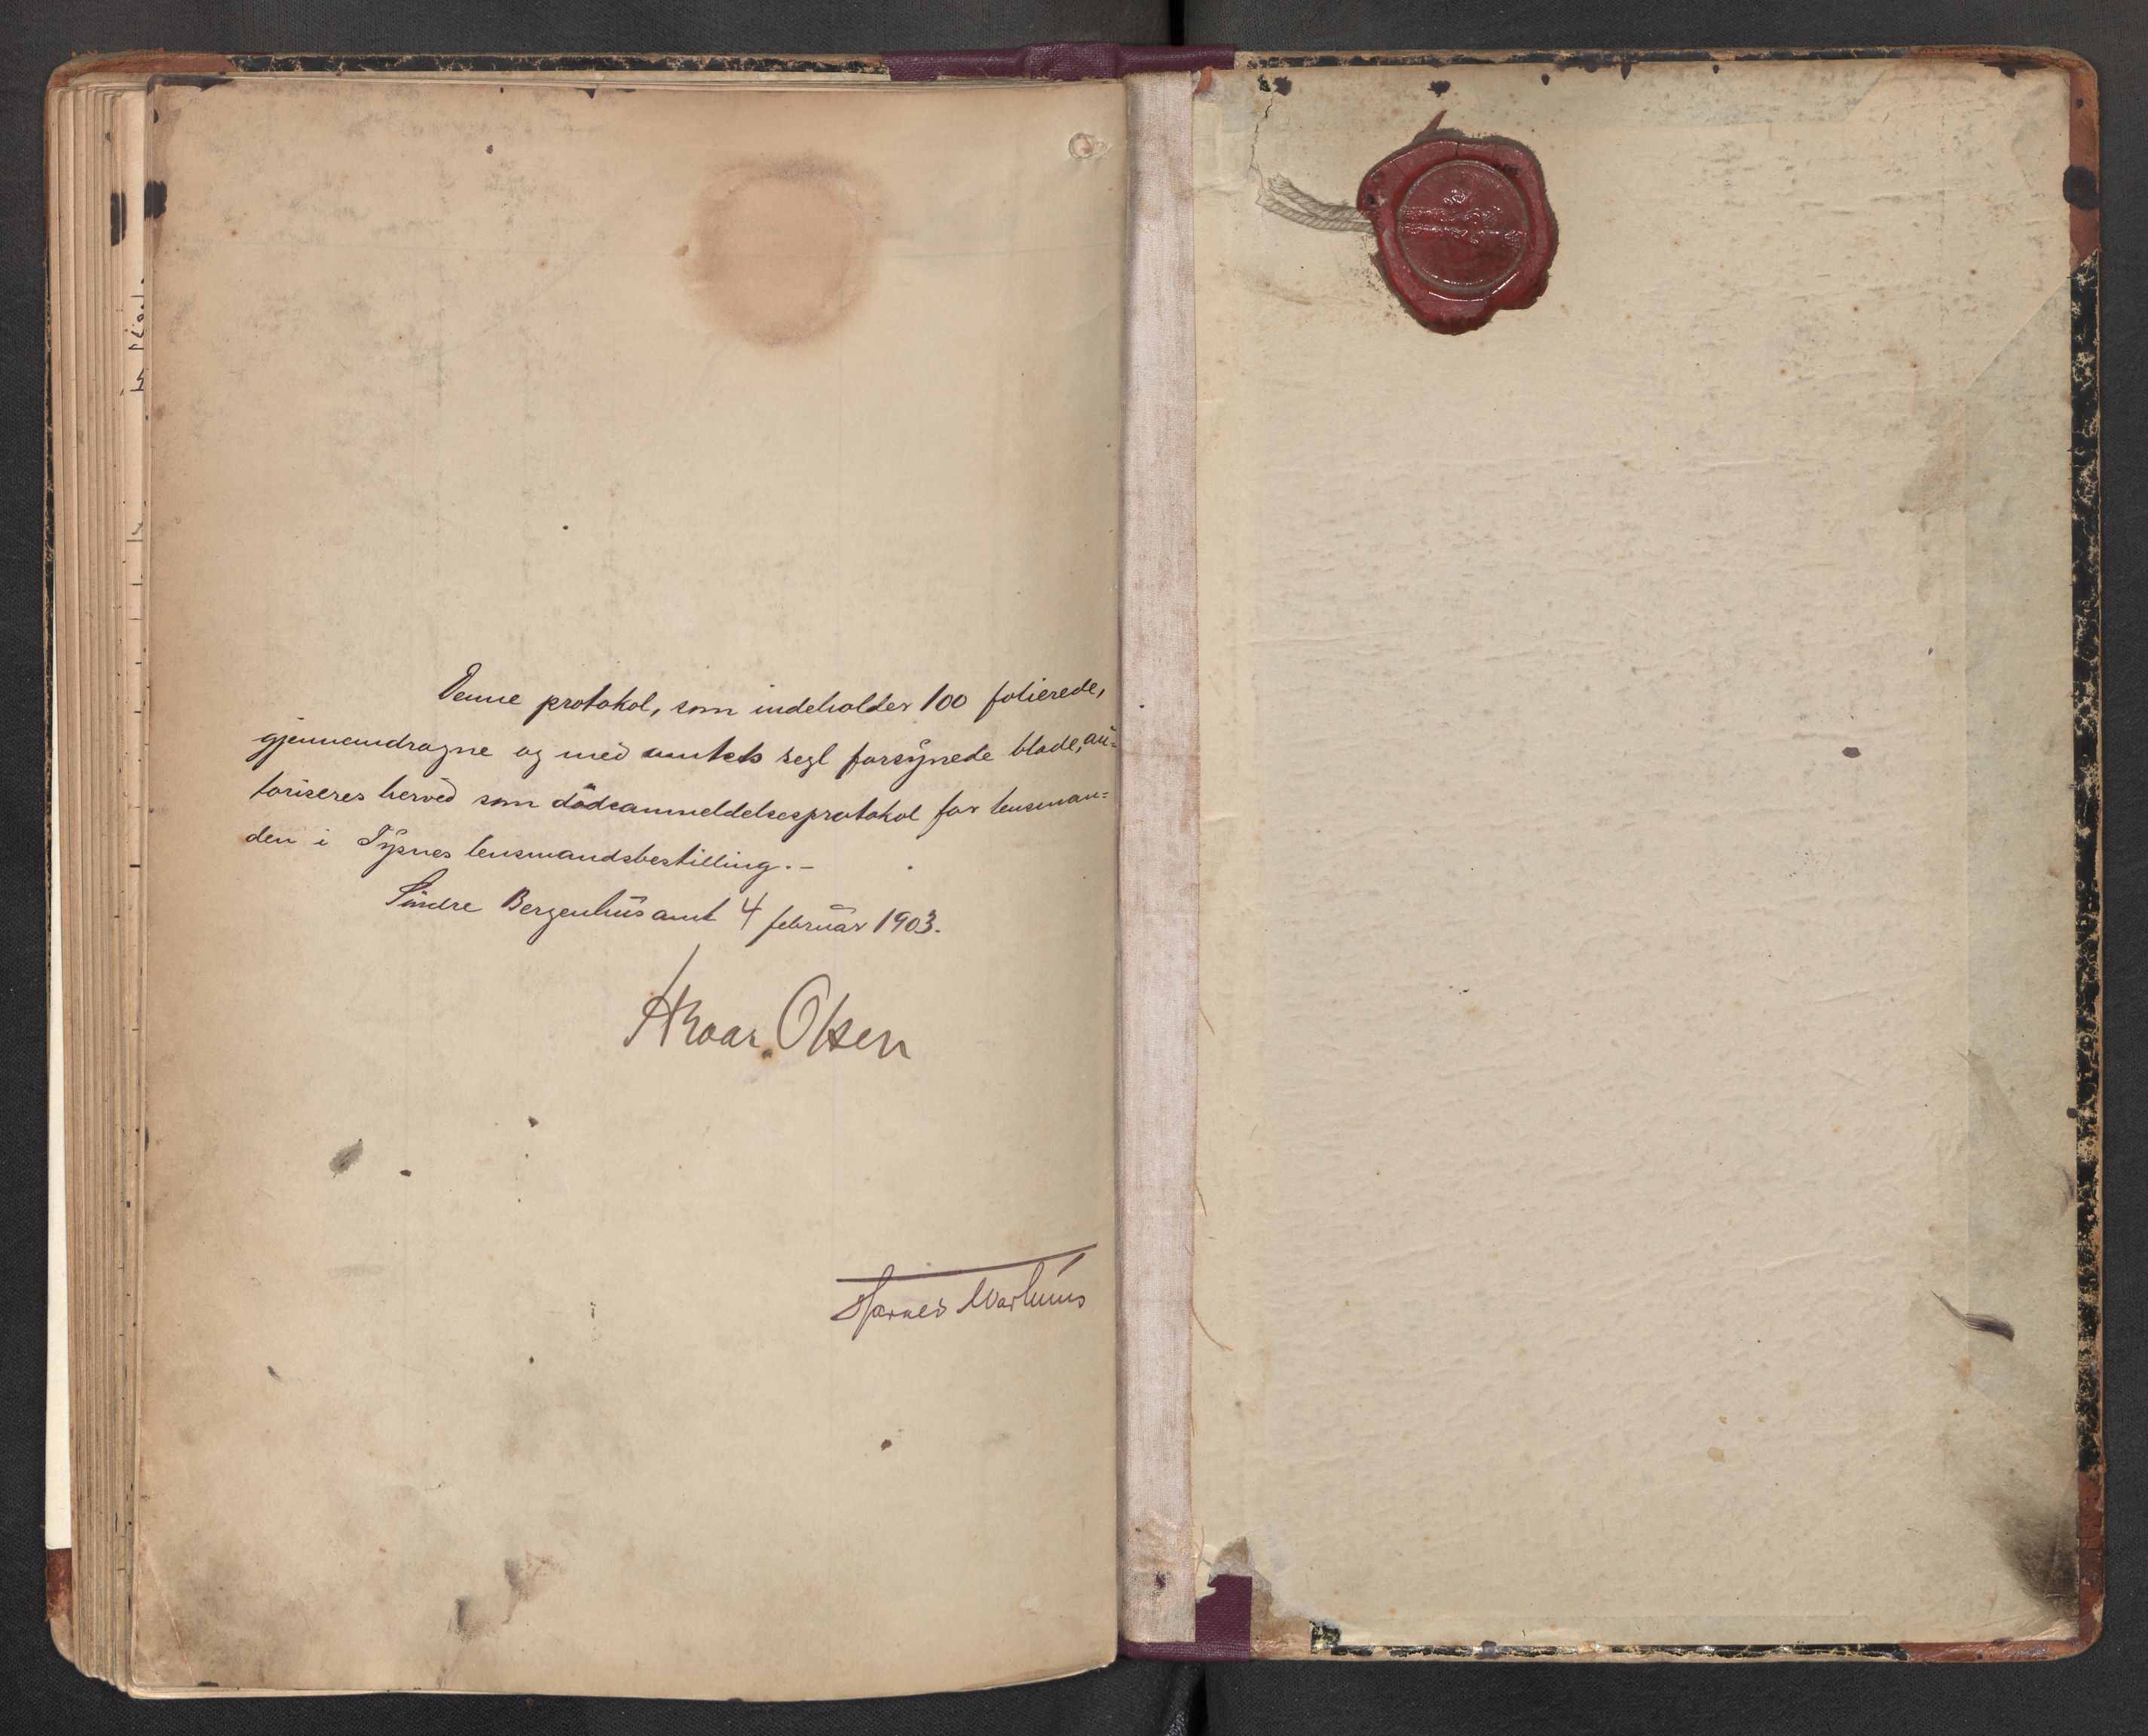 Denne protokol, som indeholder 100 folierede,
gjennemdragne og med amtets segl forsynede blade, au=
toriseres herved som dödsanmeldelsesprotokol for lensman=
den i Tysnes lensmandsbestilling.-
Söndre Bergenhus amt 4 februar 1903.
Hroar Olsen
Martinus